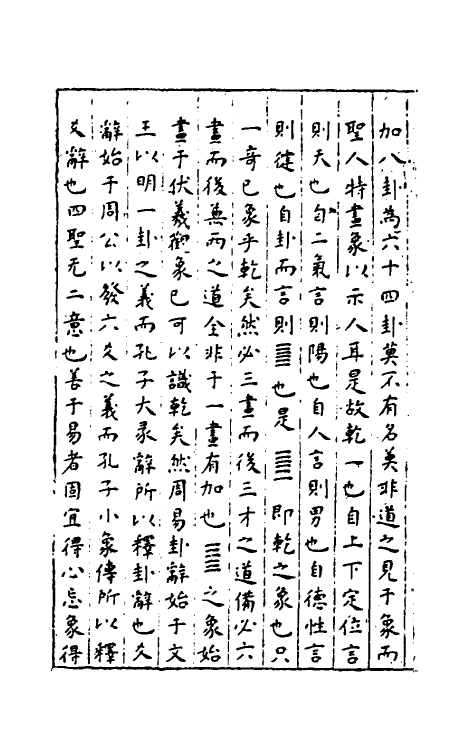 加八卦為六十四卦莫不有名焉非道之見于象而
聖人特畫象以示人耳是故乾一也自上下定位言
則天也自二氣言則陽也自人言則男也自德性言
則健也自卦而言則䷀也是䷀即乾之象也只
一奇已象乎乾矣然必三畫而後三才之道備必六
畫而後兼兩之道全非于一畫有加也䷀之象始
畫于伏羲觀象已可以識乾矣然周易卦辭始于文
王以明一卦之義而孔子大彖辭所以釋卦辭也爻
辭始于周公以發六爻之義而孔子小象傳所以釋
爻辭也四聖无二意也善于易者固宜得心忘象得